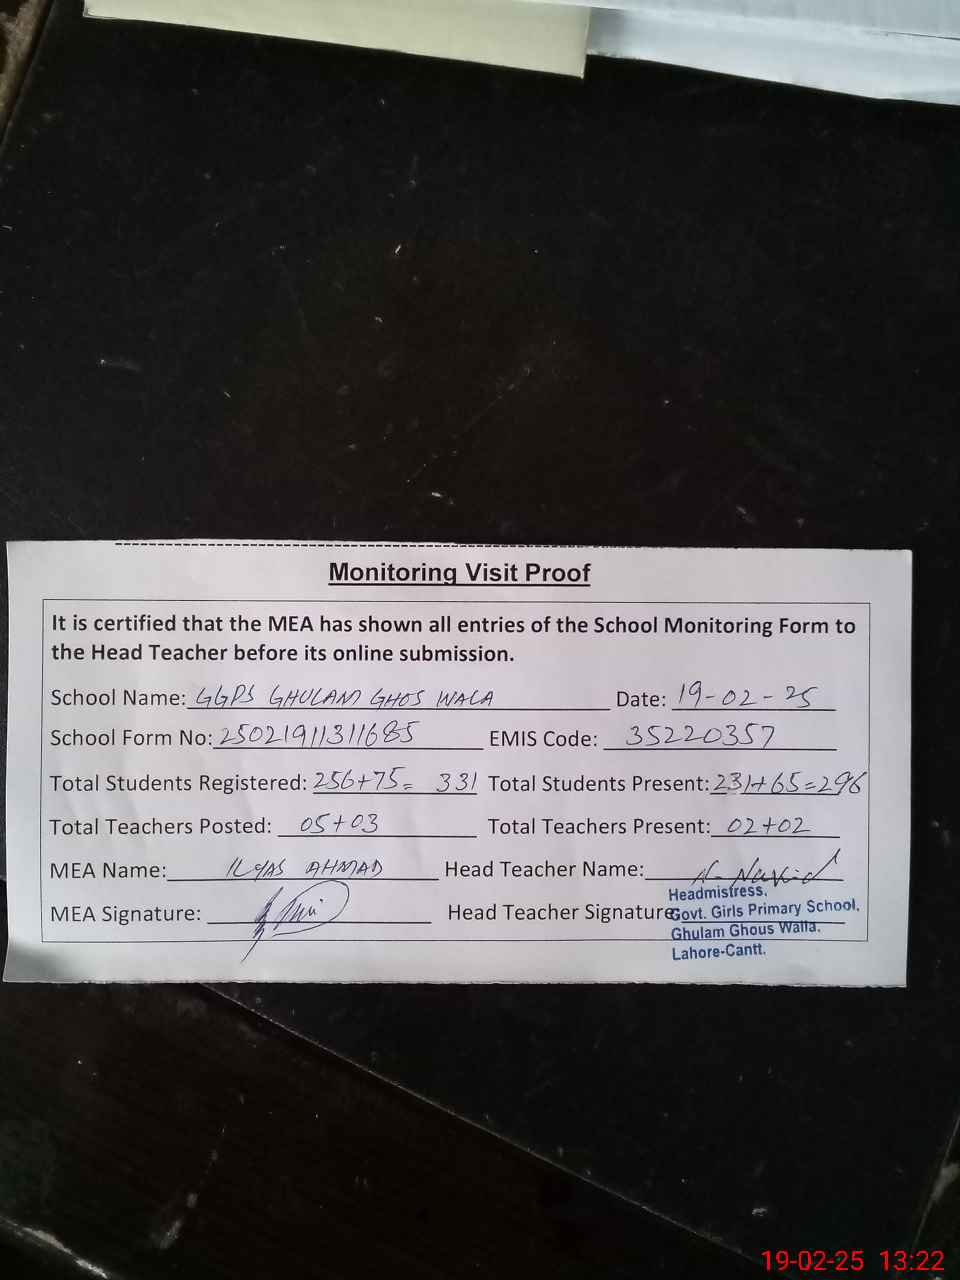 Monitoring Visit Proof
It is certified that the MEA has shown all entries of the School Monitoring Form to
the Head Teacher before its online submission.
School Name: GGPS GHULAM GHOS WALA Date: 19-02-25
School Form No: 25021911311685 EMIS Code: 35220357
Total Students Registered: 256+75= 331 Total Students Present: 231+65=296
Total Teachers Posted: 05+03 Total Teachers Present: 02+02
MEA Name: ILYAS AHMAD Head Teacher Name:
MEA Signature: Head Teacher Signature
Headmistress,
Govt. Girls Primary School,
Ghulam Ghous Walla,
Lahore-Cantt.
19-02-25 13:22